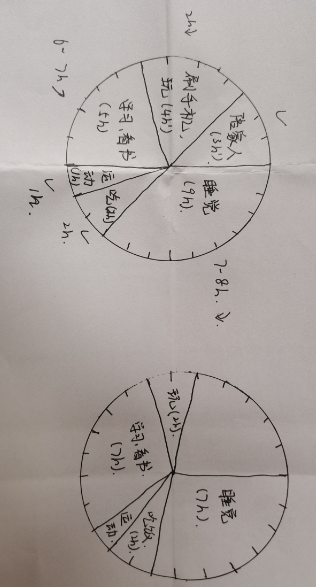 2h↓
6-7h↗
刷手机、
玩(4h)
陪家人
(3h)
学习、看书
(5h)
睡觉
(9h).
运
动
(1h)
吃(2h)
1h.
2h.
7-8h.↓
玩(2h)
学习、看书
(7h).
睡觉
(7h).
吃饭
(2h)
运
动